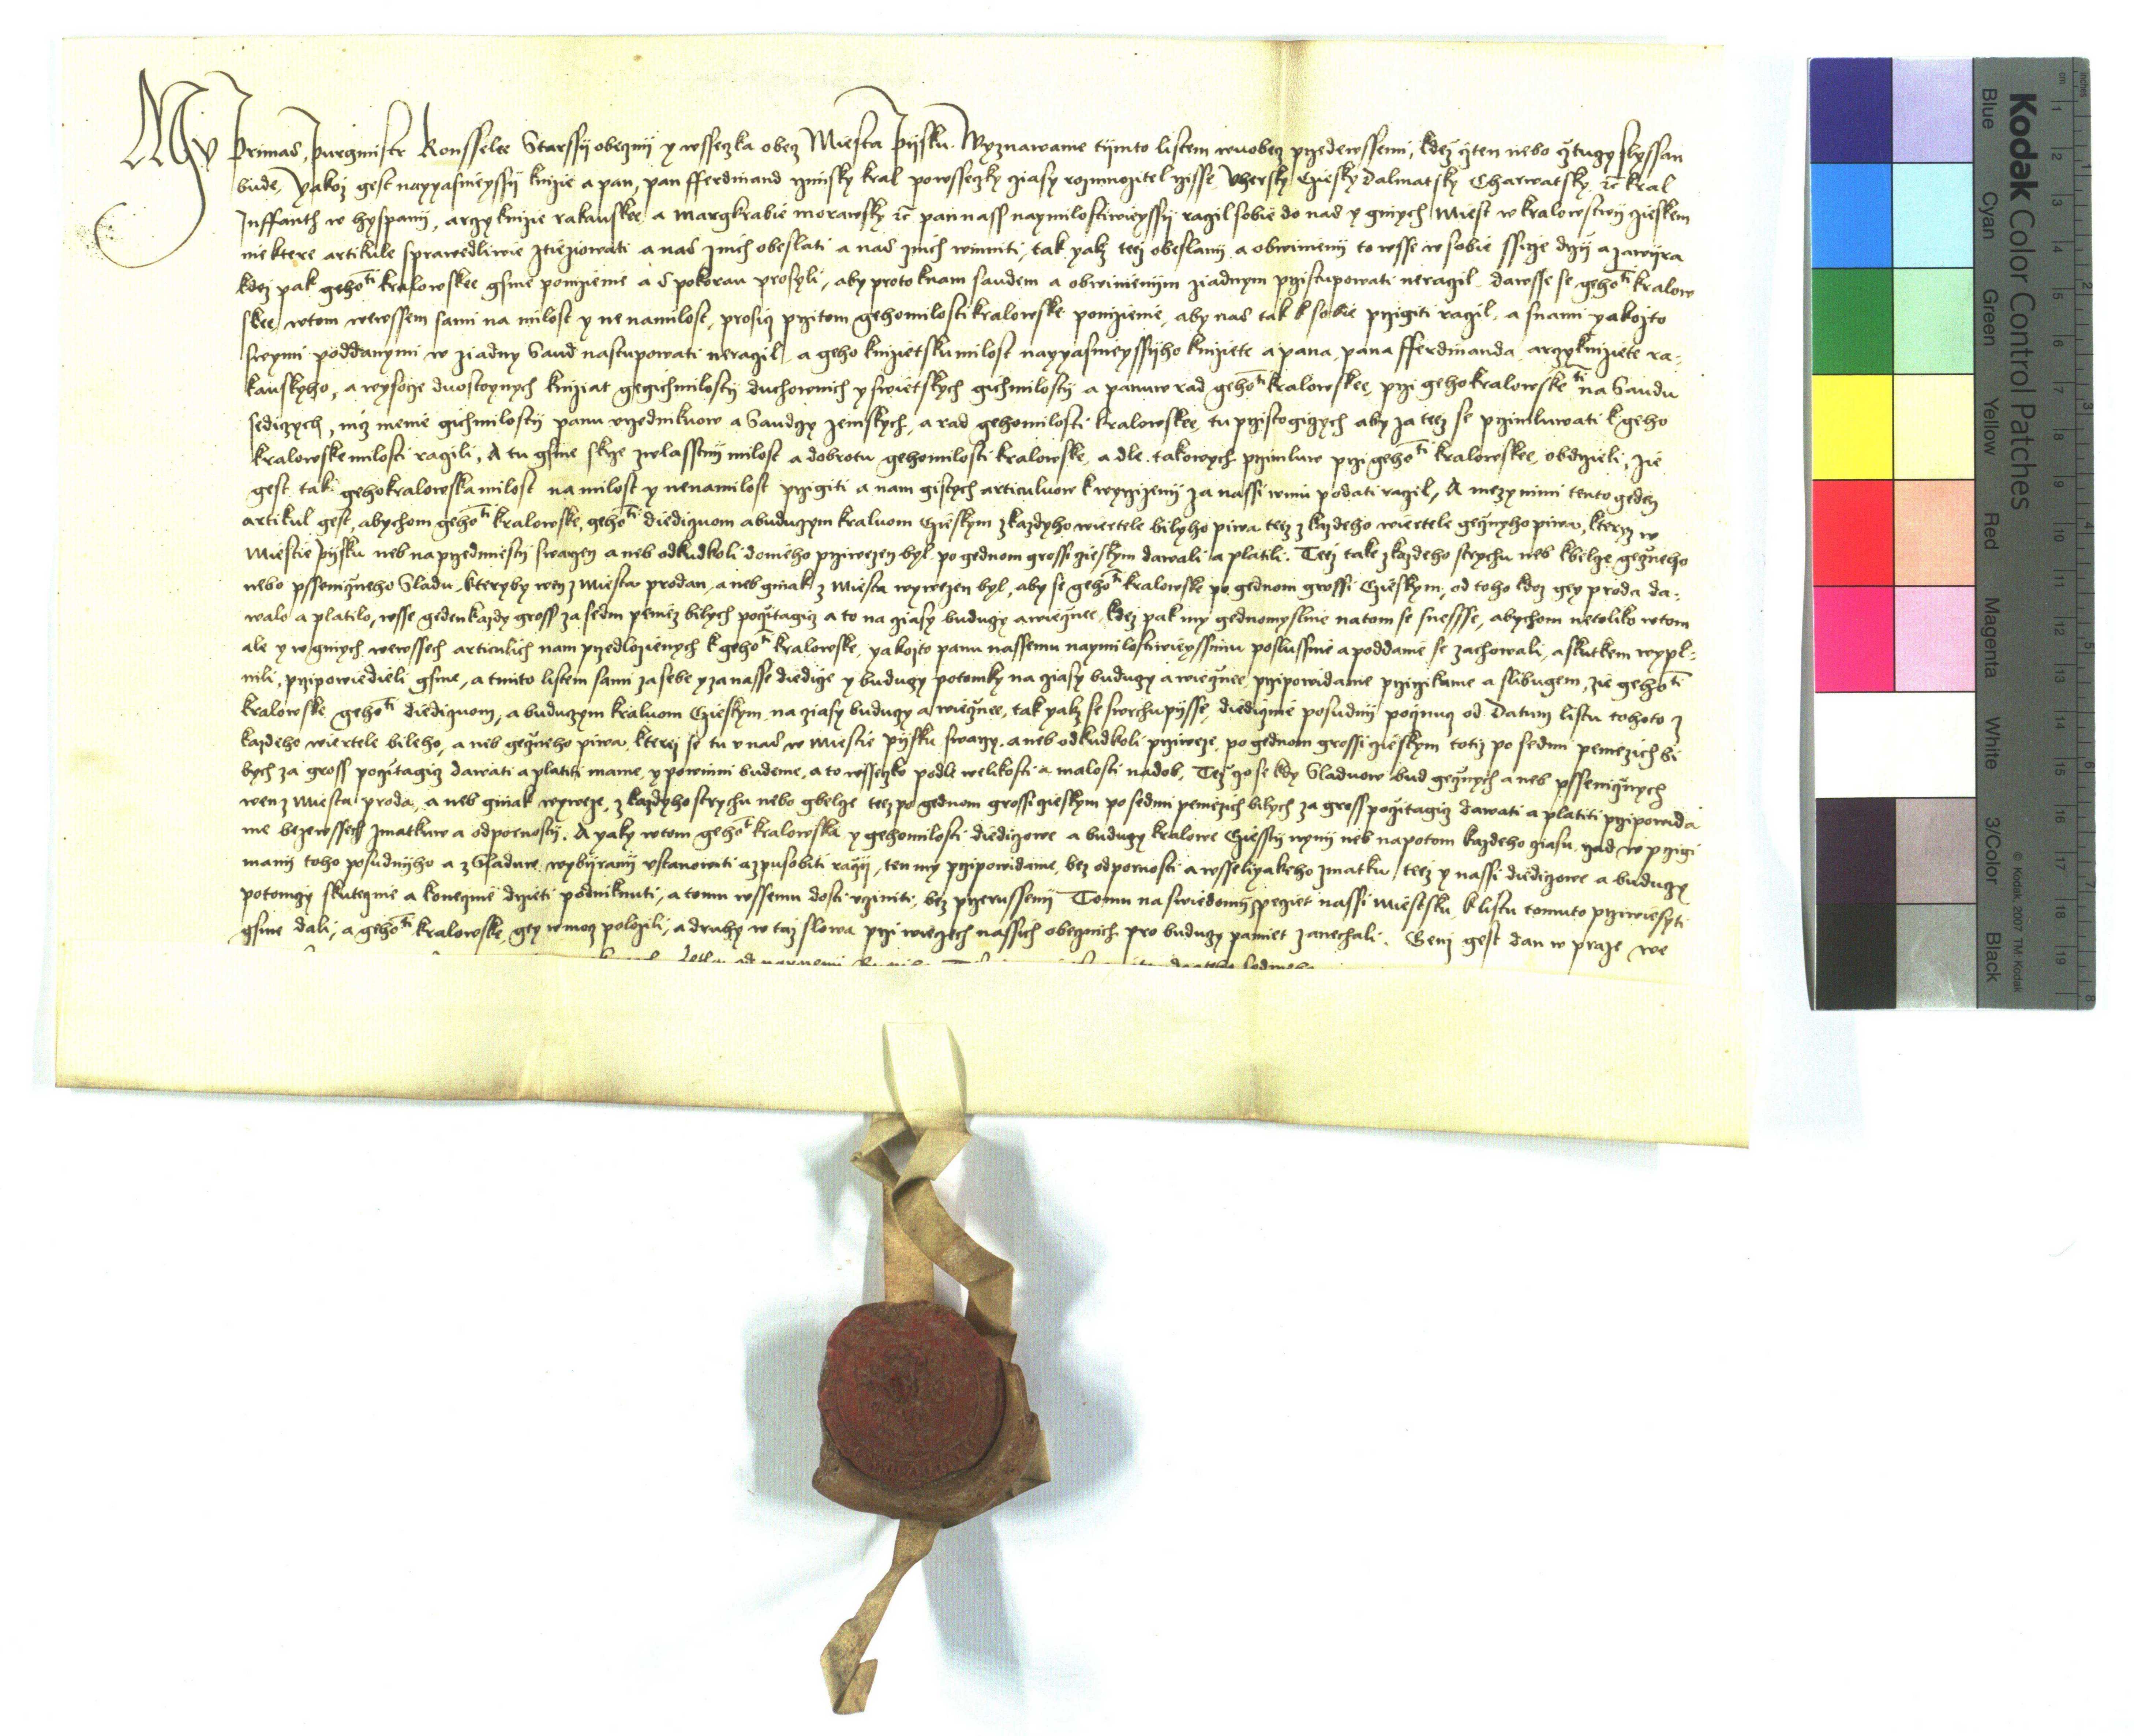 My Primas, Purgmistr Konsselee Starssy obeczny y wsseczka obecz Miesta Pysku Wyznawame tymto listem wuobecz przedewssemi, kdez czten nebo cztuczy slyssan
bude, Yakoz gest nayyasnieyssy knize a pan, pan fferdinand rzimsky kral powsseczky cziasy rozmnozitel rzisse, Uhersky Cziesky Dalmatsky Charwatsky, rc kral
Inffanth w hyspanij, arczy knize rakauskee a Margkrabie morawsky rc pan nass naymilostiwieyssy raczil sobie do nas y ginych Miest w kralowstwij cieskem
niektere artikule sprawedliwie ztiezowati a nas znich obeslati a nas znich winniti, tak yakz teez obeslanij a obwinienij to wsse w sobie ssirze drzij a zawijra
kdez pak gehoti kralowskee gsme ponizenie a s pokorau prosyli, aby proto knam saudem a obwinienijm ziadnym przistupowati neraczil dawsse se gehoti kralow
skee wtom wewssem sami na milost y ne namilost, prosycz przitom gehomilosti kralowske ponizenie, aby nas tak k sobie przigiti raczil, a snami yakozto
swymi poddanymi w ziadny Saud nastupowati neraczil, a geho knizietsku milost nayyasnieyssyho kniziete a pana, pana fferdinanda arczykniziete ra-
kauskyho, a wysocze duostoynych kniziat gegichmilosty duchownich y swietskych gichmilosty a panuw rad gehoti kralowskee, przi gehokralowske ti na Saudu
sediczych, nicz menie gichmilosty panu urzednikuow a Saudczy zemskych, a rad gehomilosti kralowskee, tu przistogiczych aby za teez se przimluwati k geho
kralowske milosti raczili, A tu gsme skrze zwlasstny milost a dobrotu gehomilosti kralowske, a dle takowych przimluw przi gehoti kralowskee, obdrzieli, zie
gest tak gehokralowska milost na milost y nenamilost przigiti a nam gistych articuluow k wyrzizenij za nassi winu podati raczil, A mezy nimi tento geden
artikul gest, abychom gehoti kralowske, gehoti diediczuom a buduczym kraluom Czieskym z kazdyho wiertele bilyho piwa teez z kazdeho wiertele gecznyho piwa, kterez w
Miestie Pijsku neb na przedmiesty swarzen a neb odkudkoli doniho przywezen byl po gednom grossi czieskym dawali a platili. Teez take z kazdeho strychu neb kbelcze geczneho
nebo psseniczneho Sladu, kteryby wen z Miesta prodan, a neb ginak z Miesta wywezen byl, aby se gehoti kralowske po gednom grossi Czieskym, od toho kdoz gey proda da-
walo a platilo, wsse geden kazdy gross za sedm peniez bilych poczitagicz a to na cziasy buduczy a wiecznee, kdez pak my gednomyslnie natom se snessse, abychom netoliko wtom
ale y w ginych wewssech articulich nam przedlozienych k gehoti kralowske, yakozto panu nassemu naymilostiwieyssimu poslussnie a poddanie se zachowali, a skutkem wypl-
nili, przipowiedieli gsme, a timto listem sami za sebe y za nasse diedicze y buduczy potomky na cziasy buduczy a wiecznee przipowidame przirzikame a slibugem, zie gehoti
kralowske gehoti diediczuom, a buduczym kraluom Czieskym, na cziasy buduczy a wiecznee, tak yakz se swrchu pijsse, diedicznie posudnij pocznucz od Datum listu tohoto z
kazdeho wiertele bileho, a neb geczneho piwa, kterez se tu v nas w Miestie Pijsku swarzy, a neb odkudkoli przyweze, po gednom grossi czieskym totiz po sedmi peniezich bi
lych za gross poczitagicz dawati a platiti mame, y powinni budeme, a to wsseczko podle welikosti a malosti nadob, Tez czo se kdy Sladuow bud gecznych a neb psseniczných
wen z Miesta proda, a neb ginak wyweze, z kazdyho strychu nebo gbelcze teez po gednom grossi czieskym po sedmi peniezich bilych za gross poczitagicz dawati a platiti przipowida
me bezewssech zmatkuw a odpornosty, A yaky wtom gehot kralowska y gehomilosti diediczowe a buduczy kralowe Cziessty nynij neb napotom kazdeho cziasu rzad w przigi
manij toho posudnijho a z Sladuw, wybijranij ustanowiti a zpusobiti raczij, ten my przipowidame, bez odpornosti a wsselijakeho zmatku, teez y nassi diediczowe a buduczy
potomczy skutecznie a konecznie drzieti podniknuti, a tomu wssemu dosti ucziniti, bez przerussenij Tomu na swiedomij peczet nassi Miestsku k listu tomuto przywiesyti
gsme dali, a gehoti kralowske, gey w mocz polozili, a druhy w taz slowa przi wieczech nassich obecznich pro buduczy pamiet zanechali. Genz gest dan w praze we